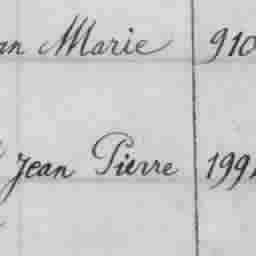 Marie 910
Jean Pierre 199